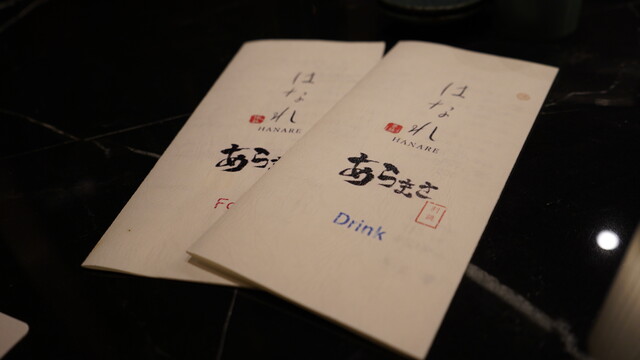 はなれ
HANARE
あらまさ
Drink
はなれ
HANARE
あらま
Fo